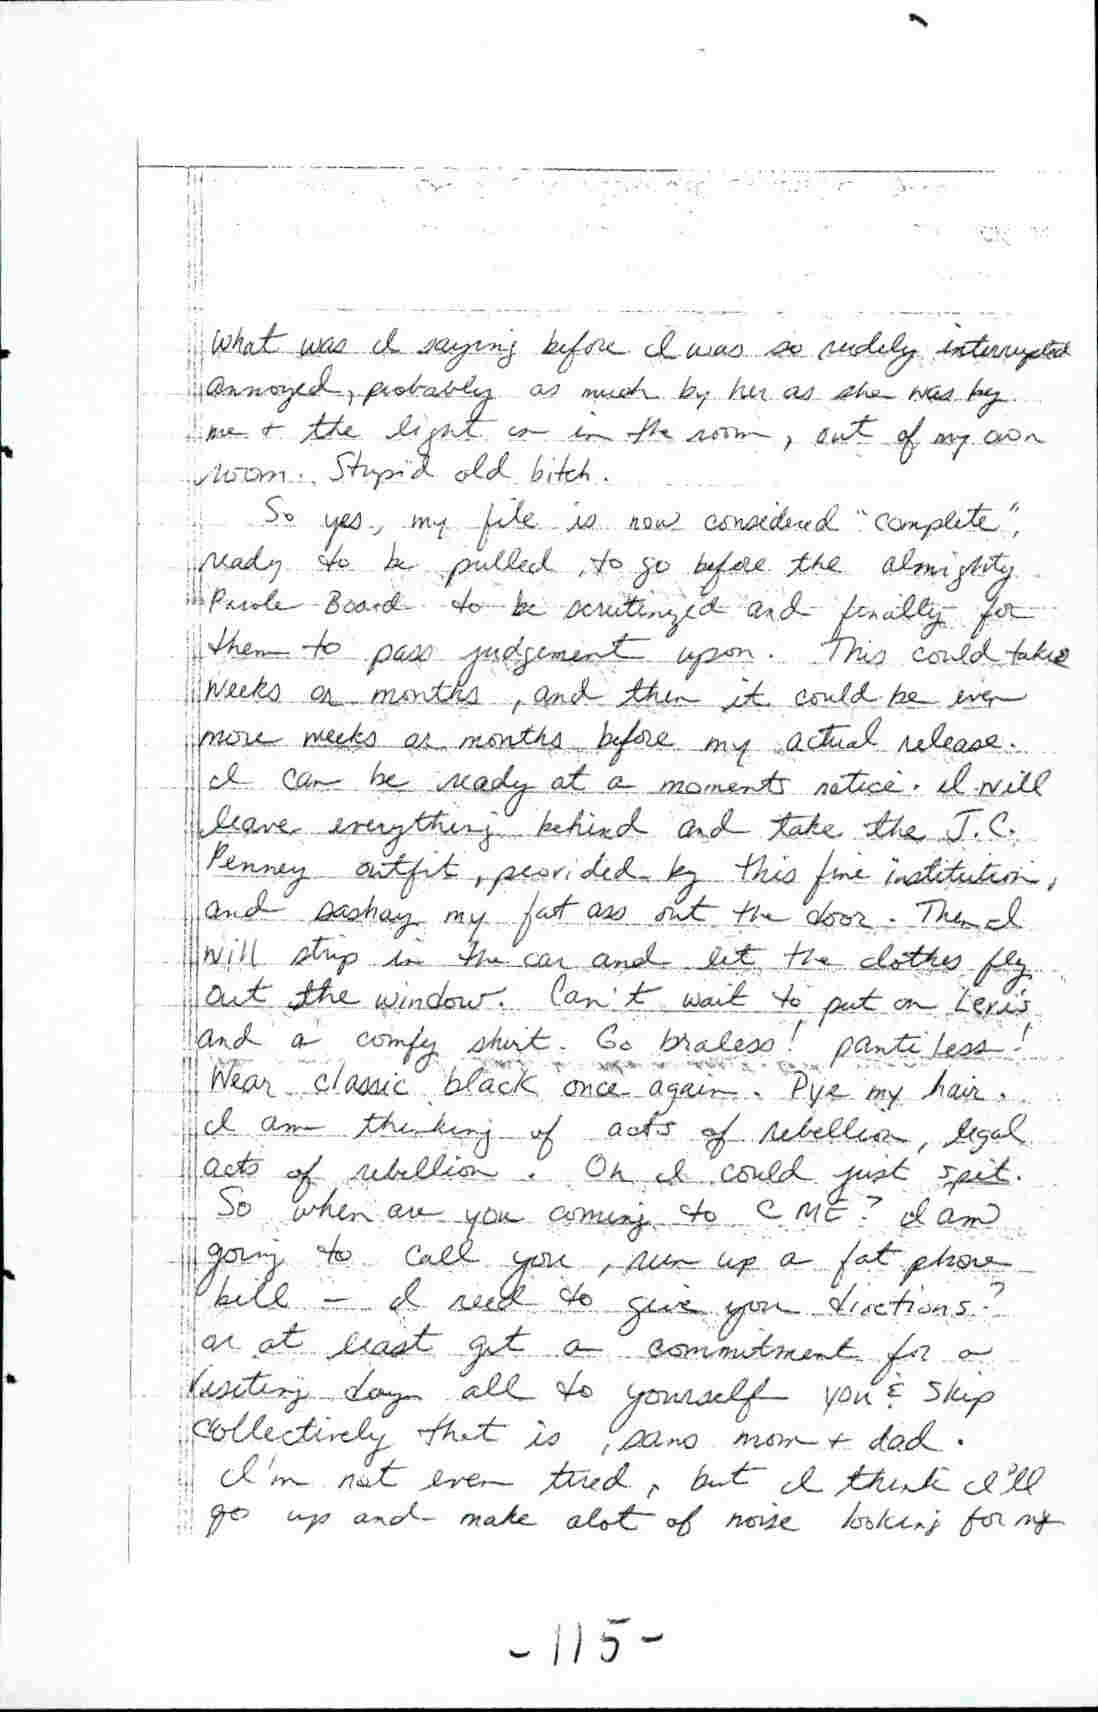 what was I saying before I was so rudely interrupted
annoyed, probably as much by her as she was by
me + the light on in the room, out of my own
room. Stupid old bitch.
So yes, my file is now considered "complete",
ready to be pulled, to go before the almighty
Parole Board to be scrutinized and finally for
them to pass judgement upon. This could take
weeks or months, and then it could be even
more weeks or months before my actual release.
I can be ready at a moments notice. I will
leave everything behind and take the J.C.
Penney outfit, provided by this fine institution,
and sashay my fat ass out the door. Then I
will strip in the car and let the clothes fly
out the window. Can't wait to put on Levi's
and a comfy shirt. Go braless! pantiless!
Wear classic black once again. Dye my hair.
I am thinking of acts of rebellion, legal
acts of rebellion. Oh I could just spit.
So when are you coming to CMF? I am
going to call you, run up a fat phone
bill — I need to give you dirctions?
or at least get a commitment for a
visiting day all to yourself you & Skip
collectively that is, sans mom + dad.
I'm not even tired, but I think I'll
go up and make alot of noise looking for my
-115-